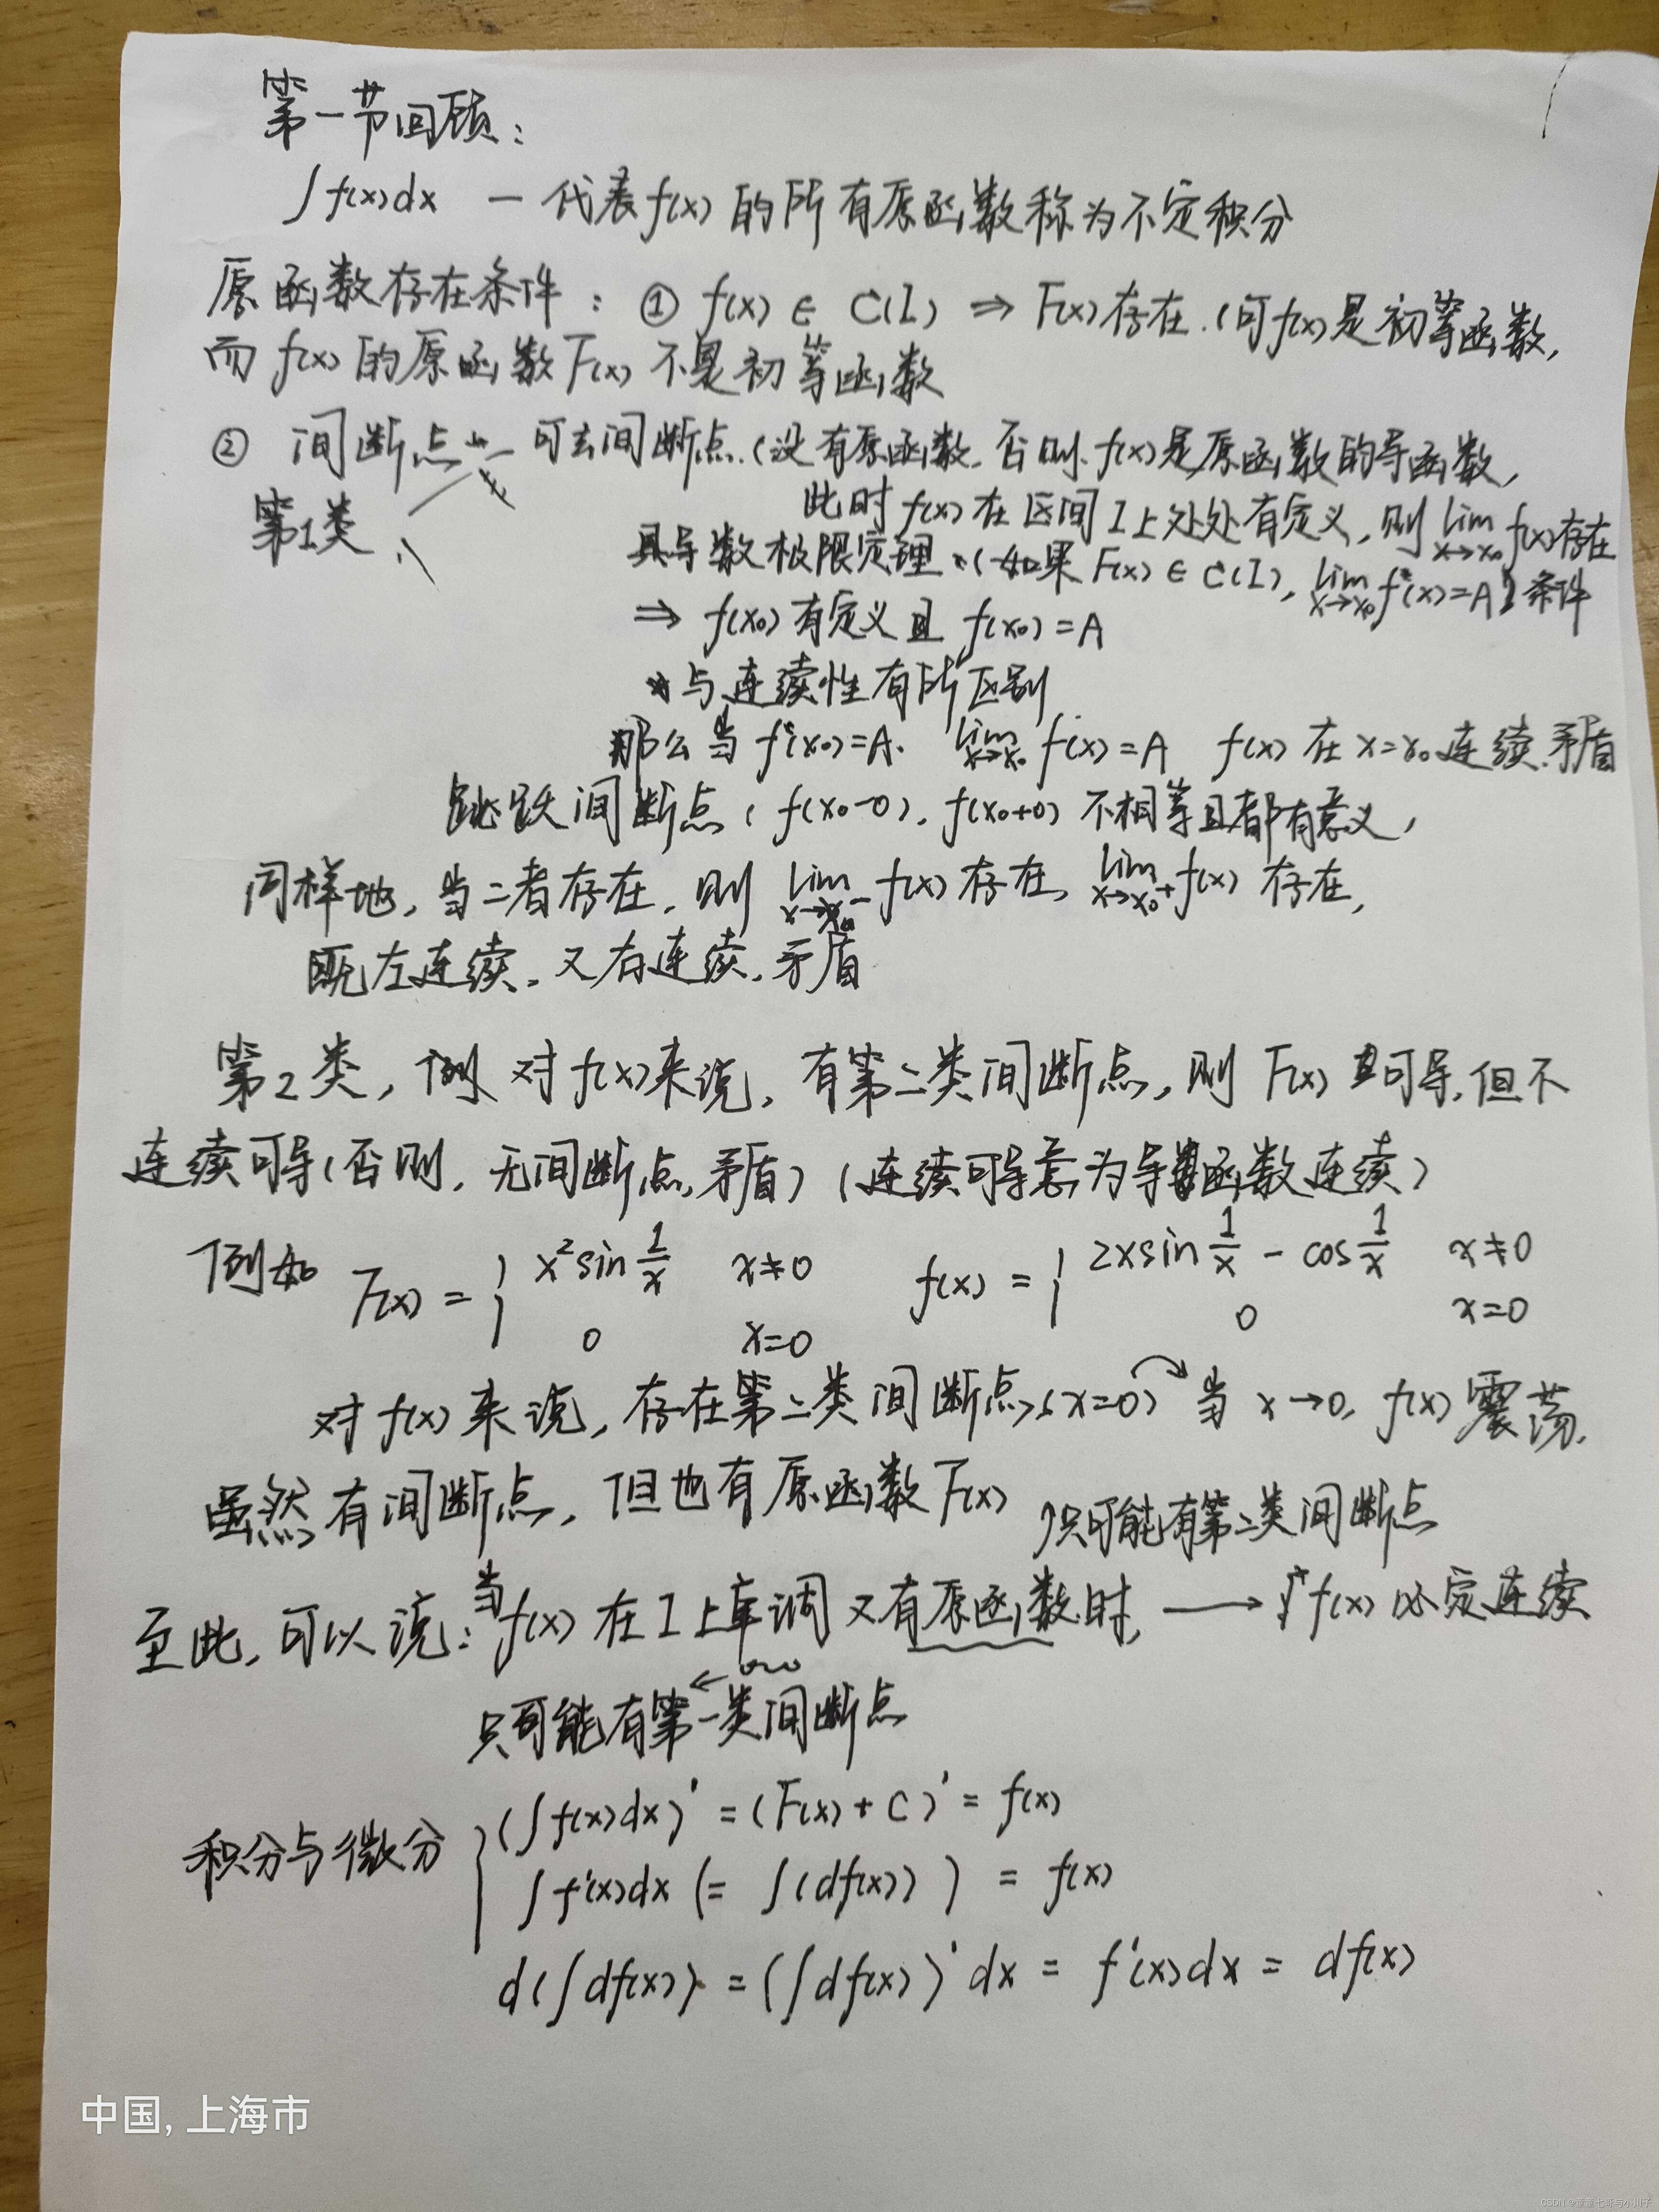 第一节回顾：
∫f(x)dx — 代表f(x)的所有原函数称为不定积分
原函数存在条件：① f(x) ∈ C(I) ⇒ F(x)存在.(可f(x)是初等函数,
而f(x)的原函数F(x)不是初等函数
② 间断点 可去间断点.(没有原函数.否则.f(x)是原函数的导函数,
第1类
此时f(x)在区间I上处处有定义,则 lim x→x₀ f(x)存在
具导数极限定理.(如果F(x) ∈ C(I), lim x→x₀ f(x)=A 条件
⇒ f(x₀)有定义且f(x₀)=A
与连续性有所区别
那么当f(x₀)=A. lim x→x₀ f(x)=A f(x)在x=x₀连续.矛盾
跳跃间断点( f(x₀-0), f(x₀+0)不相等且都有意义,
同样地,当二者存在,则 lim x→x₀⁻ f(x)存在, lim x→x₀⁺ f(x)存在,
既左连续,又右连续,矛盾
第2类,例 对f(x)来说,有第二类间断点,则F(x)可导,但不
连续可导(否则,无间断点,矛盾)(连续可导意为导函数连续)
例如 F(x) = { x²sin 1/x x≠0 f(x) = { 2xsin 1/x - cos 1/x x≠0
0 x=0 0 x=0
对f(x)来说,存在第二类间断点(x=0) 当x→0, f(x)震荡.
虽然有间断点,但也有原函数F(x)
只可能有第二类间断点
至此,可以说:当f(x)在I上单调又有原函数时, → f(x)必定连续
只可能有第一类间断点
积分与微分 { (∫f(x)dx)' = (F(x)+C)' = f(x)
∫f'(x)dx (= ∫(df(x))) = f(x)
d(∫df(x)) = (∫df(x))'dx = f'(x)dx = df(x)
中国, 上海市